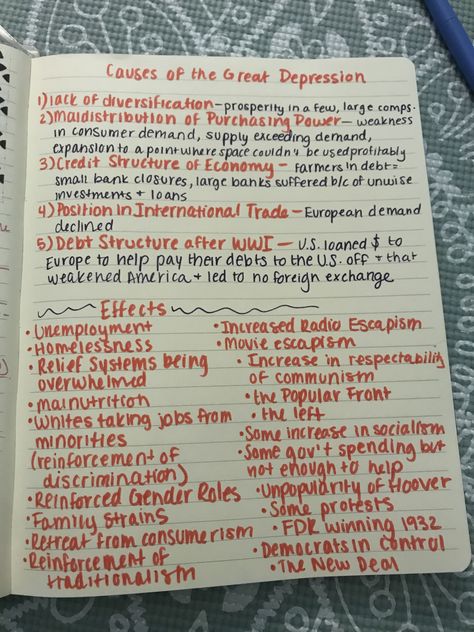 Causes of the Great Depression
1) lack of diversification - prosperity in a few, large comps.
2) Maldistribution of Purchasing Power - weakness
in consumer demand, supply exceeding demand,
expansion to a point where space couldn't be used profitably
3) Credit Structure of Economy - farmers in debt =
small bank closures, large banks suffered b/c of unwise
investments + loans
4) Position in International Trade - European demand
declined
5) Debt Structure after WWI - U.S. loaned $ to
Europe to help pay their debts to the U.S. off + that
weakened America + led to no foreign exchange
Effects
• Unemployment
• Homelessness
• Relief Systems being
overwhelmed
• malnutrition
• Whites taking jobs from
minorities
(reinforcement of
discrimination)
• Reinforced Gender Roles
• Family Strains
• Retreat from consumerism
• Reinforcement of
traditionalism
• Increased Radio Escapism
• Movie escapism
• Increase in respectability
of communism
• the Popular Front
• the left
• Some increase in socialism
• Some gov't spending but
not enough to help
• Unpopularity of Hoover
• Some protests
• FDR winning 1932
• Democrats in control
• The New Deal